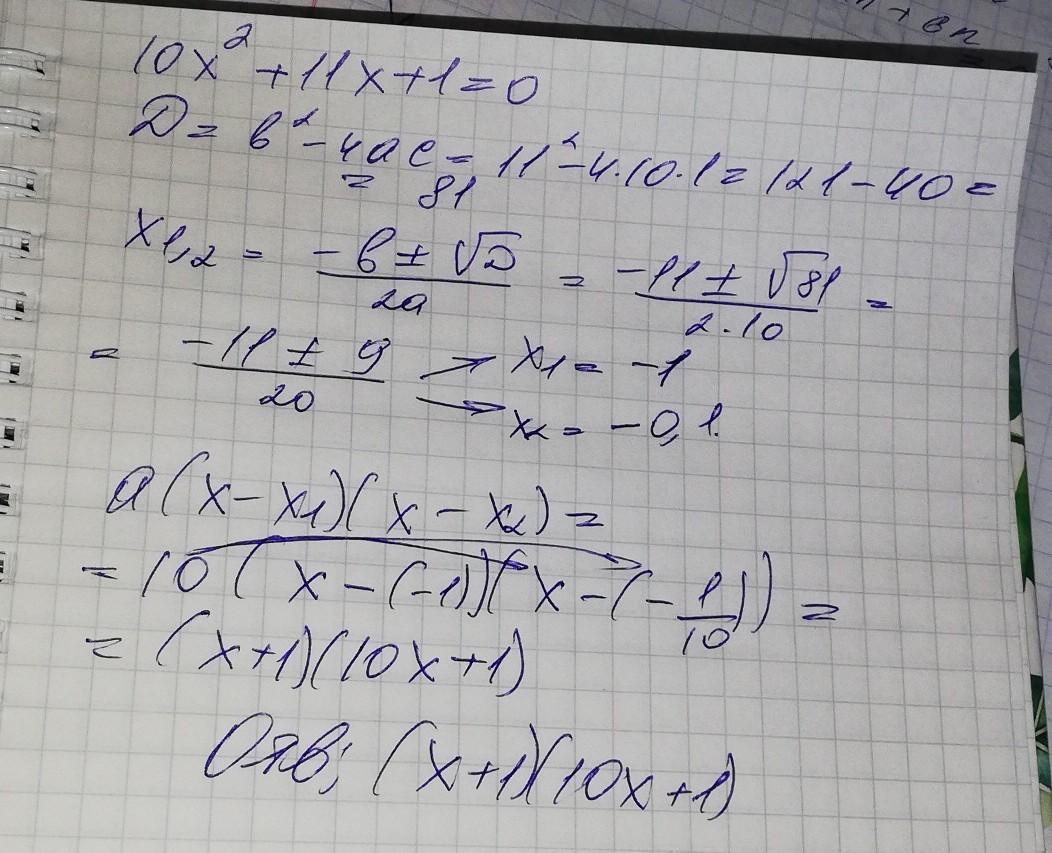 10x² + 11x + 1 = 0
D = b² - 4ac = 11² - 4·10·1 = 121 - 40 =
= 81
x1,2 = (-b ± √D)/(2a) = (-11 ± √81)/(2·10) =
= (-11 ± 9)/20 → x1 = -1
→ x2 = -0,1.
a(x - x1)(x - x2) =
= 10(x - (-1))(x - (-1/10)) =
= (x+1)(10x+1)
Отв; (x+1)(10x+1)